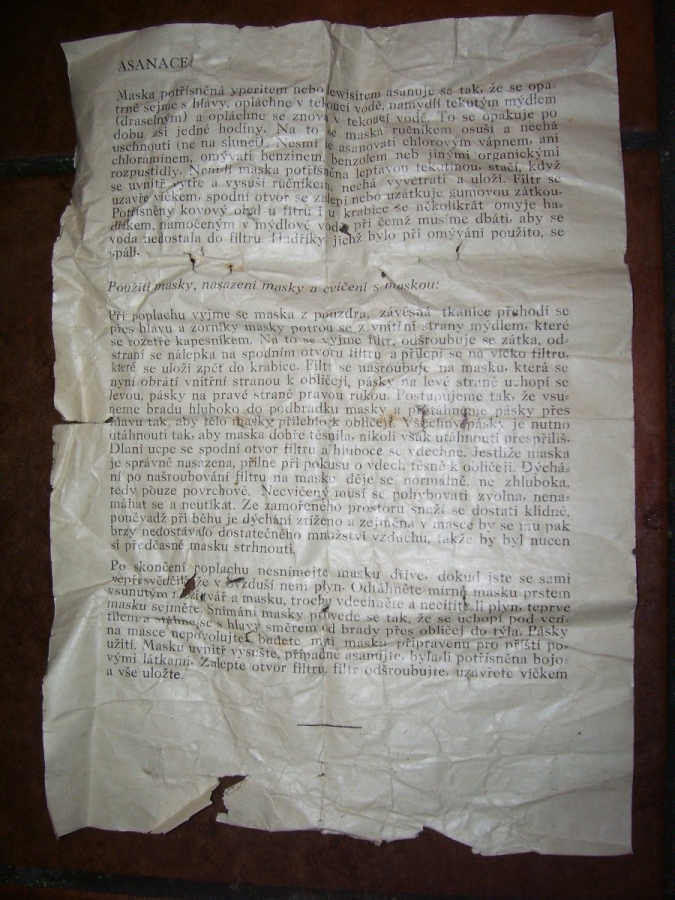 ASANACE:
Maska potřísněná yperitem nebo lewisitem asanuje se tak, že se opa-
trně sejme s hlavy, opláchne v tekoucí vodě, namydlí tekutým mýdlem
(draselným) a opláchne se znovu v tekoucí vodě. To se opakuje po
dobu asi jedné hodiny. Na to se maska ručníkem osuší a nechá
uschnouti (ne na slunci). Nesmí se asanovati chlorovým vápnem, ani
chloraminem, omývati benzinem, benzolem neb jinými organickými
rozpustidly. Není-li maska potřísněna leptavou tekutinou, stačí, když
se uvnitř vytře a vysuší ručníkem, nechá vyvětrati a uloží. Filtr se
uzavře víčkem, spodní otvor se zalepí nebo uzátkuje gumovou zátkou.
Potřísněný kovový obal u filtru i u krabice se několikrát omyje ha-
dříkem, namočeným v mýdlové vodě, při čemž musíme dbáti, aby se
voda nedostala do filtru. Hadříky, jichž bylo při omývání použito, se
spálí.
Použití masky, nasazení masky a cvičení s maskou:
Při poplachu vyjme se maska z pouzdra, závěsná tkanice přehodí se
přes hlavu a zorníky masky potrou se z vnitřní strany mýdlem, které
se rozetře kapesníkem. Na to se vyjme filtr, odšroubuje se zátka, od-
straní se nálepka na spodním otvoru filtru a přilepí se na víčko filtru,
které se uloží zpět do krabice. Filtr se našroubuje na masku, která se
nyní obrátí vnitřní stranou k obličeji, pásky na levé straně uchopí se
levou, pásky na pravé straně pravou rukou. Postupujeme tak, že vsu-
neme bradu hluboko do podbradku masky a přetáhneme pásky přes
hlavu tak, aby tělo masky přilehlo k obličeji. Všechny pásky je nutno
utáhnouti tak, aby maska dobře těsnila, nikoli však utáhnouti přespříliš.
Dlaní ucpe se spodní otvor filtru a hluboce se vdechne. Jestliže maska
je správně nasazena, přilne při pokusu o vdech těsně k obličeji. Dýchá-
ní po našroubování filtru na masku děje se normálně, ne zhluboka,
tedy pouze povrchově. Necvičený musí se pohybovati zvolna, nena-
máhat se a neutíkat. Ze zamořeného prostoru snaží se dostati klidně,
poněvadž při běhu je dýchání ztíženo a zejména v masce by se mu pak
brzy nedostávalo dostatečného množství vzduchu, takže by byl nucen
si předčasně masku strhnouti.
Po skončení poplachu nesnímejte masku dříve, dokud jste se sami
nepřesvědčili, že v ovzduší není plyn. Odtáhněte mírně masku prstem
vsunutým mezi tvář a masku, trochu vdechněte a necítíte-li plyn, teprve
masku sejměte. Snímání masky provede se tak, že se uchopí pod ven-
tilem a stáhne se s hlavy směrem od brady přes obličej do týla. Pásky
na masce nepovolujte, budete míti masku připravenu pro příští po-
užití. Masku uvnitř vysušte, případně asanujte, byla-li potřísněna bojo-
vými látkami. Zalepte otvor filtru, filtr odšroubujte, uzavřete víčkem
a vše uložte.